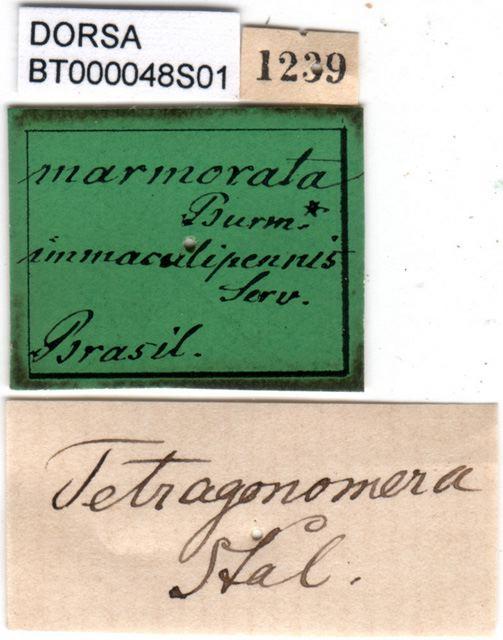 DORSA
BT000048S01
1239
marmorata
Burm.*
immaculipennis
Serv.
Brasil.
Tetragonomera
Stal.